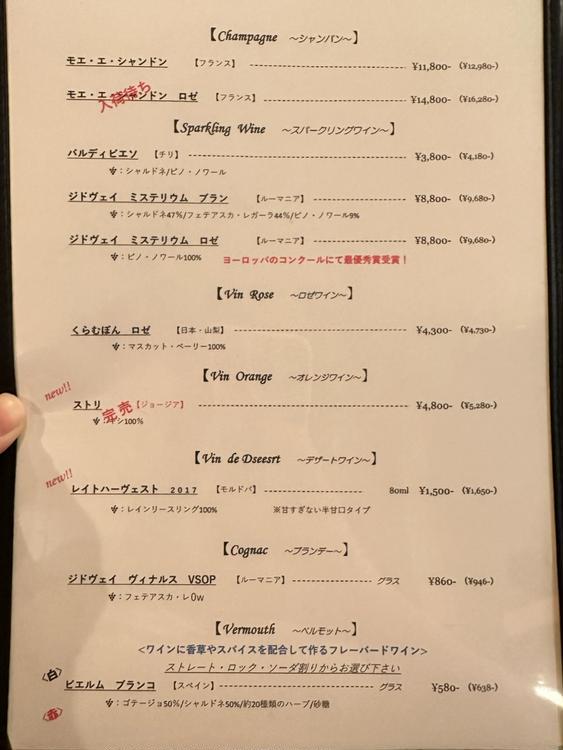 【Champagne ～シャンパン～】
モエ・エ・シャンドン 【フランス】 ¥11,800- (¥12,980-)
入荷待ち
モエ・エ ンドン ロゼ 【フランス】 ¥14,800- (¥16,280-)
【Sparkling Wine ～スパークリングワイン～】
バルディビエソ 【チリ】 ¥3,800- (¥4,180-)
：シャルドネ/ピノ・ノワール
ジドヴェイ ミステリウム ブラン 【ルーマニア】 ¥8,800- (¥9,680-)
：シャルドネ47%/フェテアスカ・レガーラ44%/ピノ・ノワール9%
ジドヴェイ ミステリウム ロゼ 【ルーマニア】 ¥8,800- (¥9,680-)
：ピノ・ノワール100% ヨーロッパのコンクールにて最優秀賞受賞！
【Vin Rose ～ロゼワイン～】
くらむぼん ロゼ 【日本・山梨】 ¥4,300- (¥4,730-)
：マスカット・ベーリー100%
【Vin Orange ～オレンジワイン～】
new!!
ストリ 完売 【ジョージア】 ¥4,800- (¥5,280-)
ン100%
【Vin de Dseesrt ～デザートワイン～】
new!!
レイトハーヴェスト 2017 【モルドバ】 80ml ¥1,500- (¥1,650-)
：レインリースリング100% ※甘すぎない半甘口タイプ
【Cognac ～ブランデー～】
ジドヴェイ ヴィナルス VSOP 【ルーマニア】 グラス ¥860- (¥946-)
：フェテアスカ・レ0w
【Vermouth ～ベルモット～】
<ワインに香草やスパイスを配合して作るフレーバードワイン>
ストレート・ロック・ソーダ割りからお選び下さい
白
ビエルム ブランコ 【スペイン】 グラス ¥580- (¥638-)
赤
：ゴテージョ50%/シャルドネ50%/約20種類のハーブ/砂糖